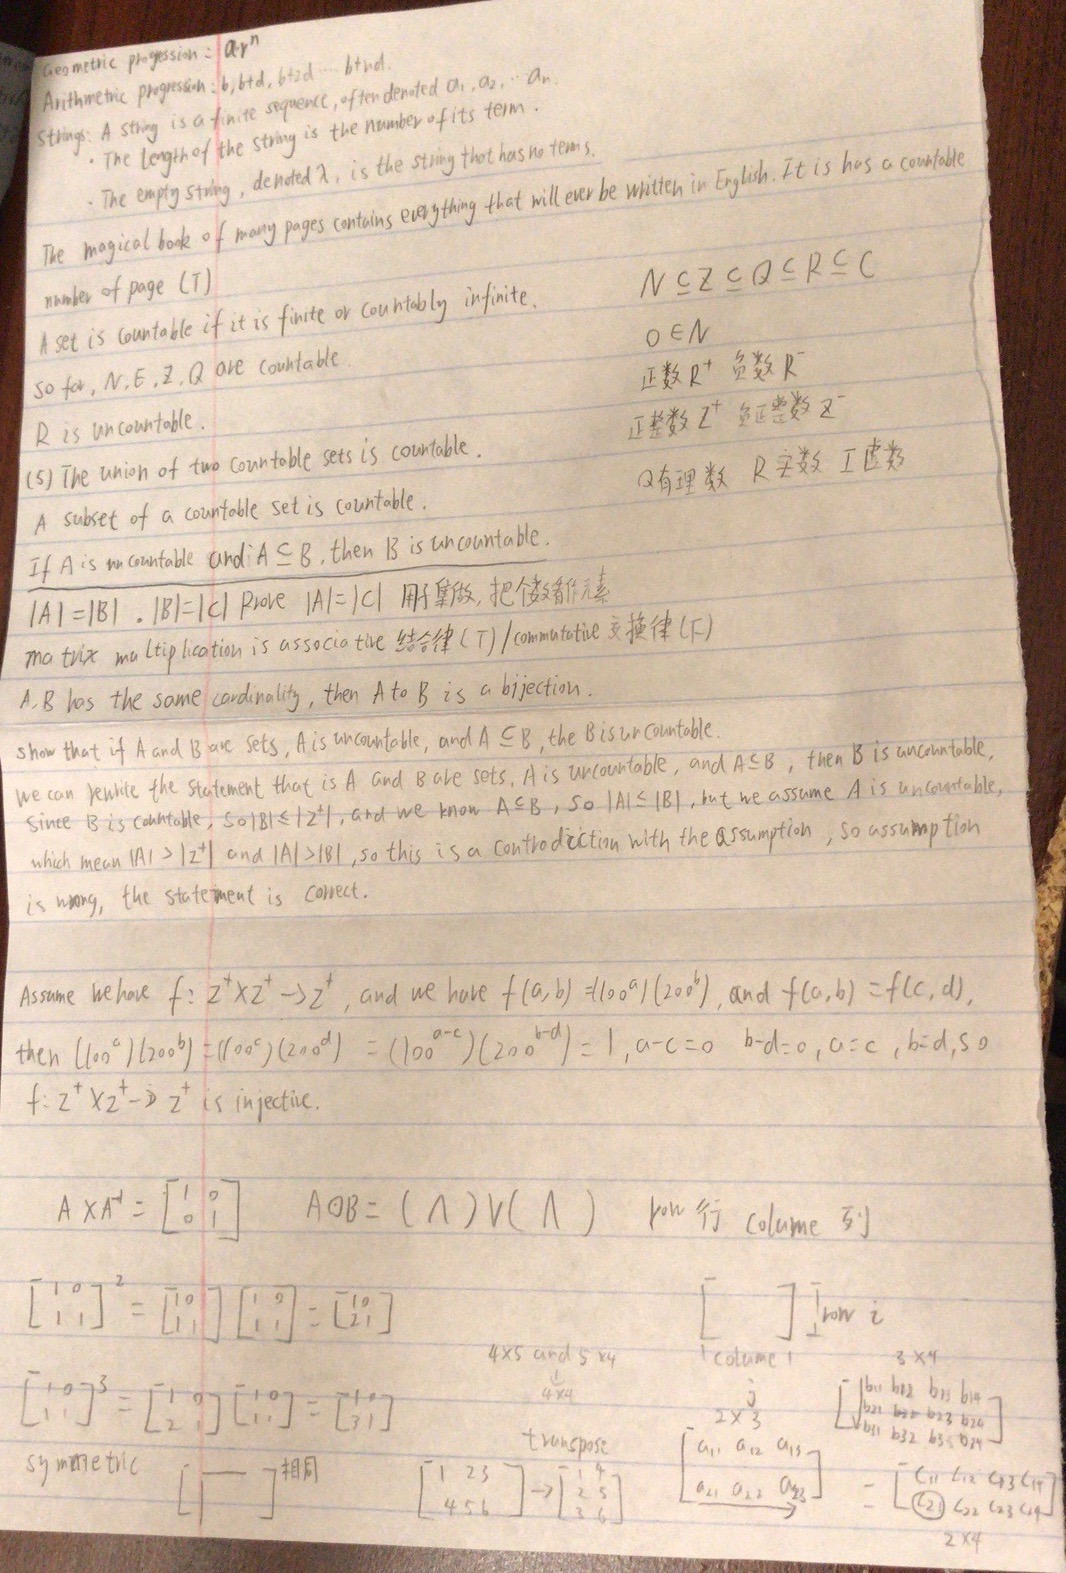 Geometric progession : a·rⁿ
Arithmetric progression : b, b+d, b+2d ... b+nd.
Strings: A string is a finite sequence, often denoted a₁, a₂, ... aₙ.
· The length of the string is the number of its term.
· The empty string, denoted λ, is the string that has no terms.
The magical book of many pages contains everything that will ever be written in English. It is has a countable
number of page (T)
A set is countable if it is finite or countably infinite.
So far, N, E, Z, Q are countable.
R is uncountable.
(5) The union of two countable sets is countable.
A subset of a countable set is countable.
If A is uncountable and A ⊆ B, then B is uncountable.
N ⊆ Z ⊆ Q ⊆ R ⊆ C
0 ∈ N
正数 R⁺ 负数 R⁻
正整数 Z⁺ 负正整数 Z⁻
Q有理数 R实数 I虚数
|A|=|B| . |B|=|C| Prove |A|=|C| 用集做, 把个数看作元素
matrix multiplication is associative 结合律(T)/commutative 交换律(F)
A, B has the same cardinality, then A to B is a bijection.
show that if A and B are sets, A is uncountable, and A ⊆ B, the B is uncountable.
we can rewrite the statement that is A and B are sets, A is uncountable, and A ⊆ B, then B is uncountable,
since B is countable, so |B| ≤ |Z⁺|, and we know A ⊆ B, so |A| ≤ |B|, but we assume A is uncountable,
which mean |A| > |Z⁺| and |A| > |B|, so this is a contradiction with the assumption, so assumption
is wrong, the statement is correct.
Assume we have f: Z⁺×Z⁺→Z⁺, and we have f(a,b) = (100ᵃ)(200ᵇ), and f(a,b) = f(c,d),
then (100ᵃ)(200ᵇ) = (100ᶜ)(200ᵈ) = (100ᵃ⁻ᶜ)(200ᵇ⁻ᵈ) = 1, a-c=0 b-d=0, a=c, b=d, so
f: Z⁺×Z⁺→Z⁺ is injective.
A×A⁻¹ = [1 0; 0 1] A⊙B = (∧)∨(∧) row 行 colume 列
[1 0; 1 1]² = [1 0; 1 1] [1 0; 1 1] = [1 0; 2 1]
[ ] row i
colume
j
4×5 and 5×4
4×4
[1 0; 1 1]³ = [1 0; 2 1] [1 0; 1 1] = [1 0; 3 1]
symmetric [ ] 相同
transpose
[1 2 3; 4 5 6] → [1 4; 2 5; 3 6]
2×3
[a₁₁ a₁₂ a₁₃; a₂₁ a₂₂ a₂₃]
3×4
[b₁₁ b₁₂ b₁₃ b₁₄; b₂₁ b₂₂ b₂₃ b₂₄; b₃₁ b₃₂ b₃₃ b₃₄]
= [c₁₁ c₁₂ c₁₃ c₁₄; c₂₁ c₂₂ c₂₃ c₂₄]
2×4